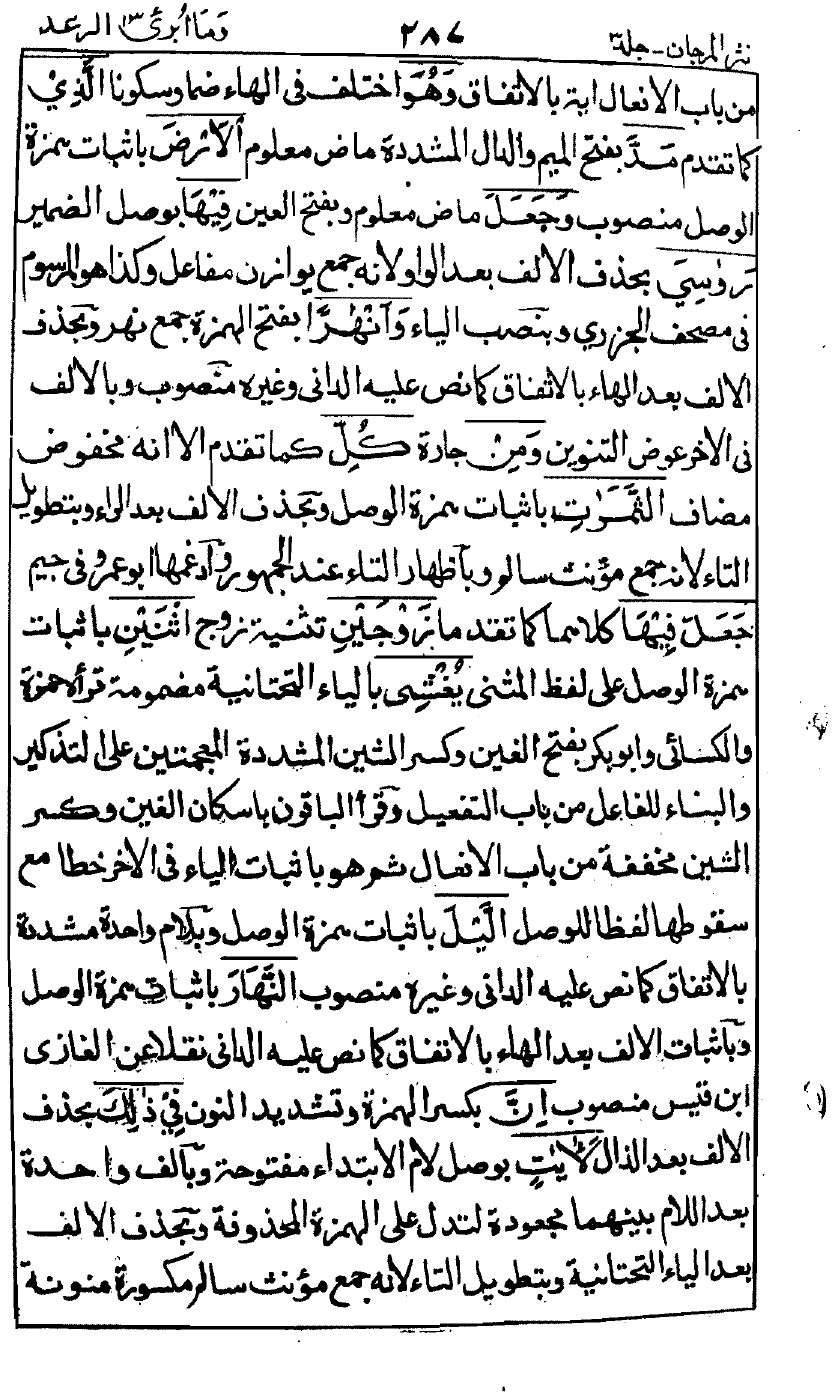 نثر المرجان - جلد٣ ٢٨٧ وما ابرئ ١٣ الرعد
من باب الافعال اية بالاتفاق وَهُوَ اختلف فى الهاء ضما وسكونا الَّذِيْ
كما تقدم مَدَّ بفتح الميم والدال المشددة ماض معلوم الْاَرْضَ باثبات همزة
الوصل منصوب وَجَعَلَ ماض معلوم وبفتح العين فِيْهَا بوصل الضمير
رَوٰسِيَ بحذف الالف بعد الواو لانه جمع يوازن مفاعل وكذا هو المرسوم
فى مصحف الجزري وبنصب الياء وَاَنْهٰرًا بفتح الهمزة جمع نهر وبحذف
الالف بعد الهاء بالاتفاق كما نص عليه الدانى وغيره منصوب وبالالف
فى الاخر عوض التنوين وَمِنْ جارة كُلِّ كما تقدم الا انه مخفوض
مضاف الثَّمَرٰتِ باثبات همزة الوصل وبحذف الالف بعد الراء وبتطويل
التاء لانه جمع مؤنث سالم وباظهار التاء عند الجمهور وادغمها ابو عمرو فى جيم
جَعَلَ فِيْهَا كلاهما كما تقدما زَوْجَيْنِ تثنية زوج اثْنَيْنِ باثبات
همزة الوصل على لفظ المثنى يُغْشِى بالياء التحتانية مضمومة قرأ حمزة
والكسائى وابو بكر بفتح الغين وكسر الشين المشددة المعجمتين على التذكير
والبناء للفاعل من باب التفعيل وقرأ الباقون باسكان الغين وكسر
الشين مخففة من باب الافعال ثم هو باثبات الياء فى الاخر خطا مع
سقوطها لفظا للوصل الَّيْلَ باثبات همزة الوصل وبلام واحدة مشددة
بالاتفاق كما نص عليه الدانى وغيره منصوب النَّهَارَ باثبات همزة الوصل
وباثبات الالف بعد الهاء بالاتفاق كما نص عليه الدانى نقلا عن الغازى
ابن قيس منصوب اِنَّ بكسر الهمزة وتشديد النون فِيْ ذٰلِكَ بحذف
الالف بعد الذال لَاٰيٰتٍ بوصل لام الابتداء مفتوحة وبالف واحدة
بعد اللام بينهما مجعودة لتدل على الهمزة المحذوفة وبحذف الالف
بعد الياء التحتانية وبتطويل التاء لانه جمع مؤنث سالم مكسورة منونة